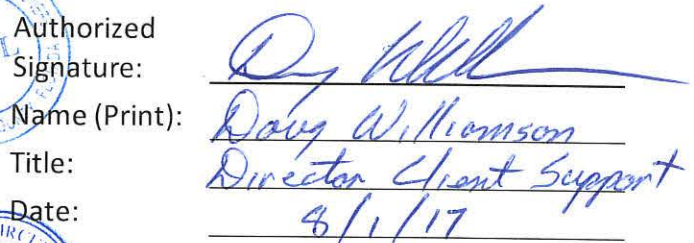 Authorized
Signature:
Name (Print): Doug Williamson
Title: Director Client Support
Date: 8/1/17